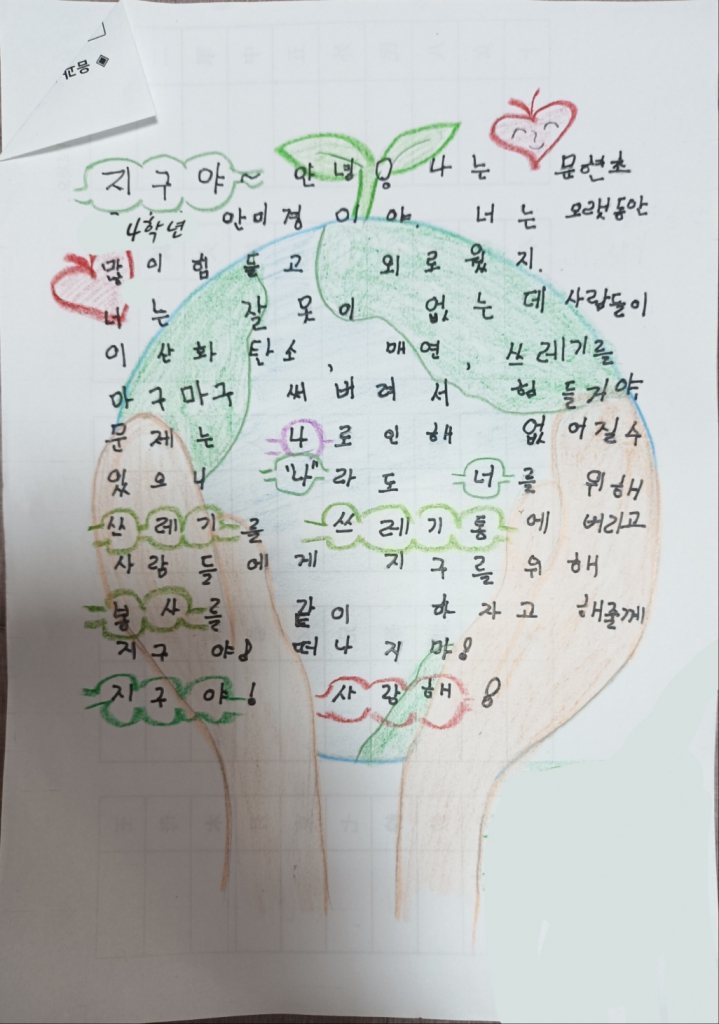 지구야~ 안녕! 나는 문현초
4학년 안미경이야. 너는 오랫동안
많이 힘들고 외로웠지.
너는 잘못이 없는데 사람들이
이산화탄소, 매연, 쓰레기를
마구마구 써버려서 힘들거야.
문제는 나로 인해 없어질수
있으니 "나"라도 너를 위해
쓰레기를 쓰레기통에 버리고
사람들에게 지구를 위해
봉사를 같이 하자고 해줄게
지구야! 떠나지 마!
지구야! 사랑해!